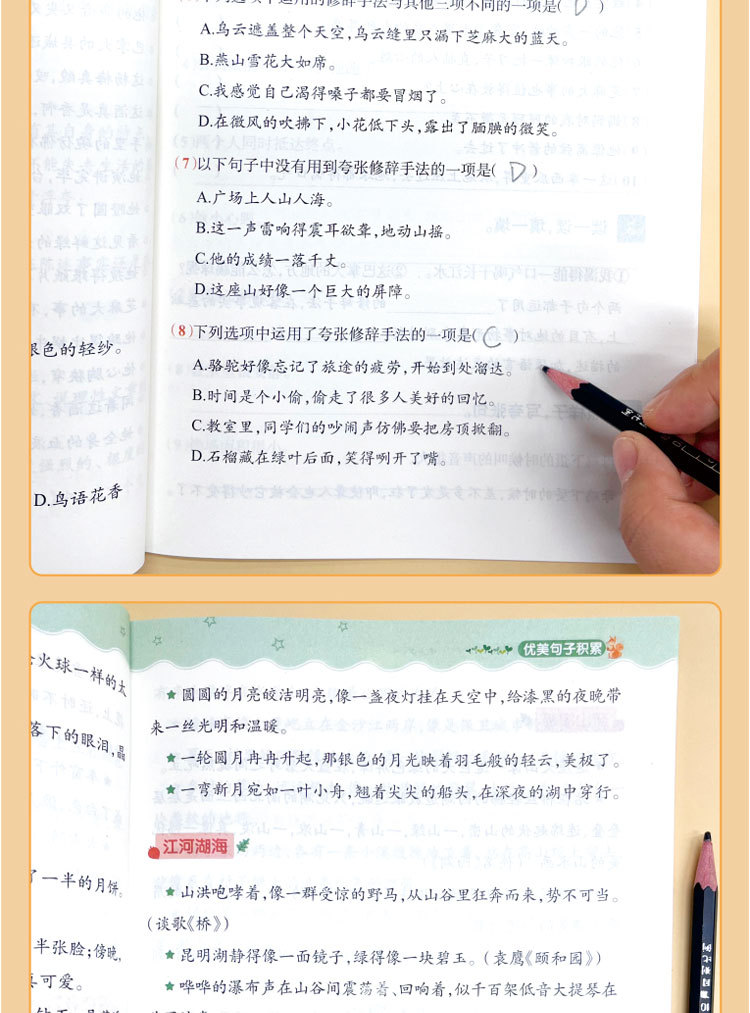 下列选项中运用的修辞手法与其他三项不同的一项是( D )
A.乌云遮盖整个天空,乌云缝里只漏下芝麻大的蓝天。
B.燕山雪花大如席。
C.我感觉自己渴得嗓子都要冒烟了。
D.在微风的吹拂下,小花低下头,露出了腼腆的微笑。
(7)以下句子中没有用到夸张修辞手法的一项是( D )
A.广场上人山人海。
B.这一声雷响得震耳欲聋,地动山摇。
C.他的成绩一落千丈。
D.这座山好像一个巨大的屏障。
(8)下列选项中运用了夸张修辞手法的一项是( C )
A.骆驼好像忘记了旅途的疲劳,开始到处溜达。
B.时间是个小偷,偷走了很多人美好的回忆。
C.教室里,同学们的吵闹声仿佛要把房顶掀翻。
D.石榴藏在绿叶后面,笑得咧开了嘴。
银色的轻纱。
D.鸟语花香
优美句子积累
★圆圆的月亮皎洁明亮,像一盏夜灯挂在天空中,给漆黑的夜晚带
来一丝光明和温暖。
★一轮圆月冉冉升起,那银色的月光映着羽毛般的轻云,美极了。
★一弯新月宛如一叶小舟,翘着尖尖的船头,在深夜的湖中穿行。
江河湖海
★山洪咆哮着,像一群受惊的野马,从山谷里狂奔而来,势不可当。
(谈歌《桥》)
★昆明湖静得像一面镜子,绿得像一块碧玉。(袁鹰《颐和园》)
★哗哗的瀑布声在山谷间震荡着、回响着,似千百架低音大提琴在
火球一样的太
落下的眼泪,晶
了一半的月饼。
半张脸;傍晚,
可爱。